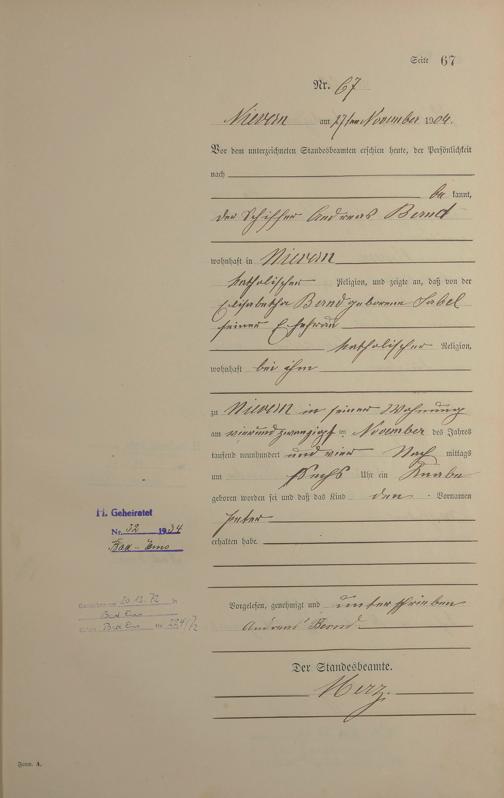 Seite 67
Nr. 67
Nievern am 27ten November 1904.
Vor dem unterzeichneten Standesbeamten erschien heute, der Persönlichkeit
nach
be kannt,
der Schiffer Andreas Bernd
wohnhaft in Nievern
katholischer Religion, und zeigte an, daß von der
Elisabetha Bernd geborene Sabel
seiner Ehefrau
katholischer Religion,
wohnhaft bei ihm
zu Nievern in seiner Wohnung
am vierundzwanzigsten November des Jahres
tausend neunhundert und vier Nach mittags
um sechs Uhr ein Knabe
geboren worden sei und daß das Kind den Vornamen
Peter
erhalten habe.
H. Geheiratet
Nr. 32 1934
Bad-Ems
20.12.72 in
Bad Ems
Bad Ems Nr. 224/72
Vorgelesen, genehmigt und unterschrieben
Andreas Bernd
Der Standesbeamte.
Merz
Form. A.